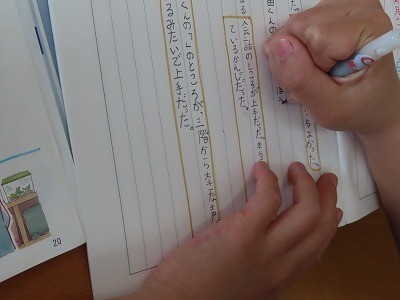 ちよかった。
田くんの
る会話のところが上手だった。本当
ているかんじだった。
くんの「」のところが、三階から大きな声
るみたいで上手だった。
20